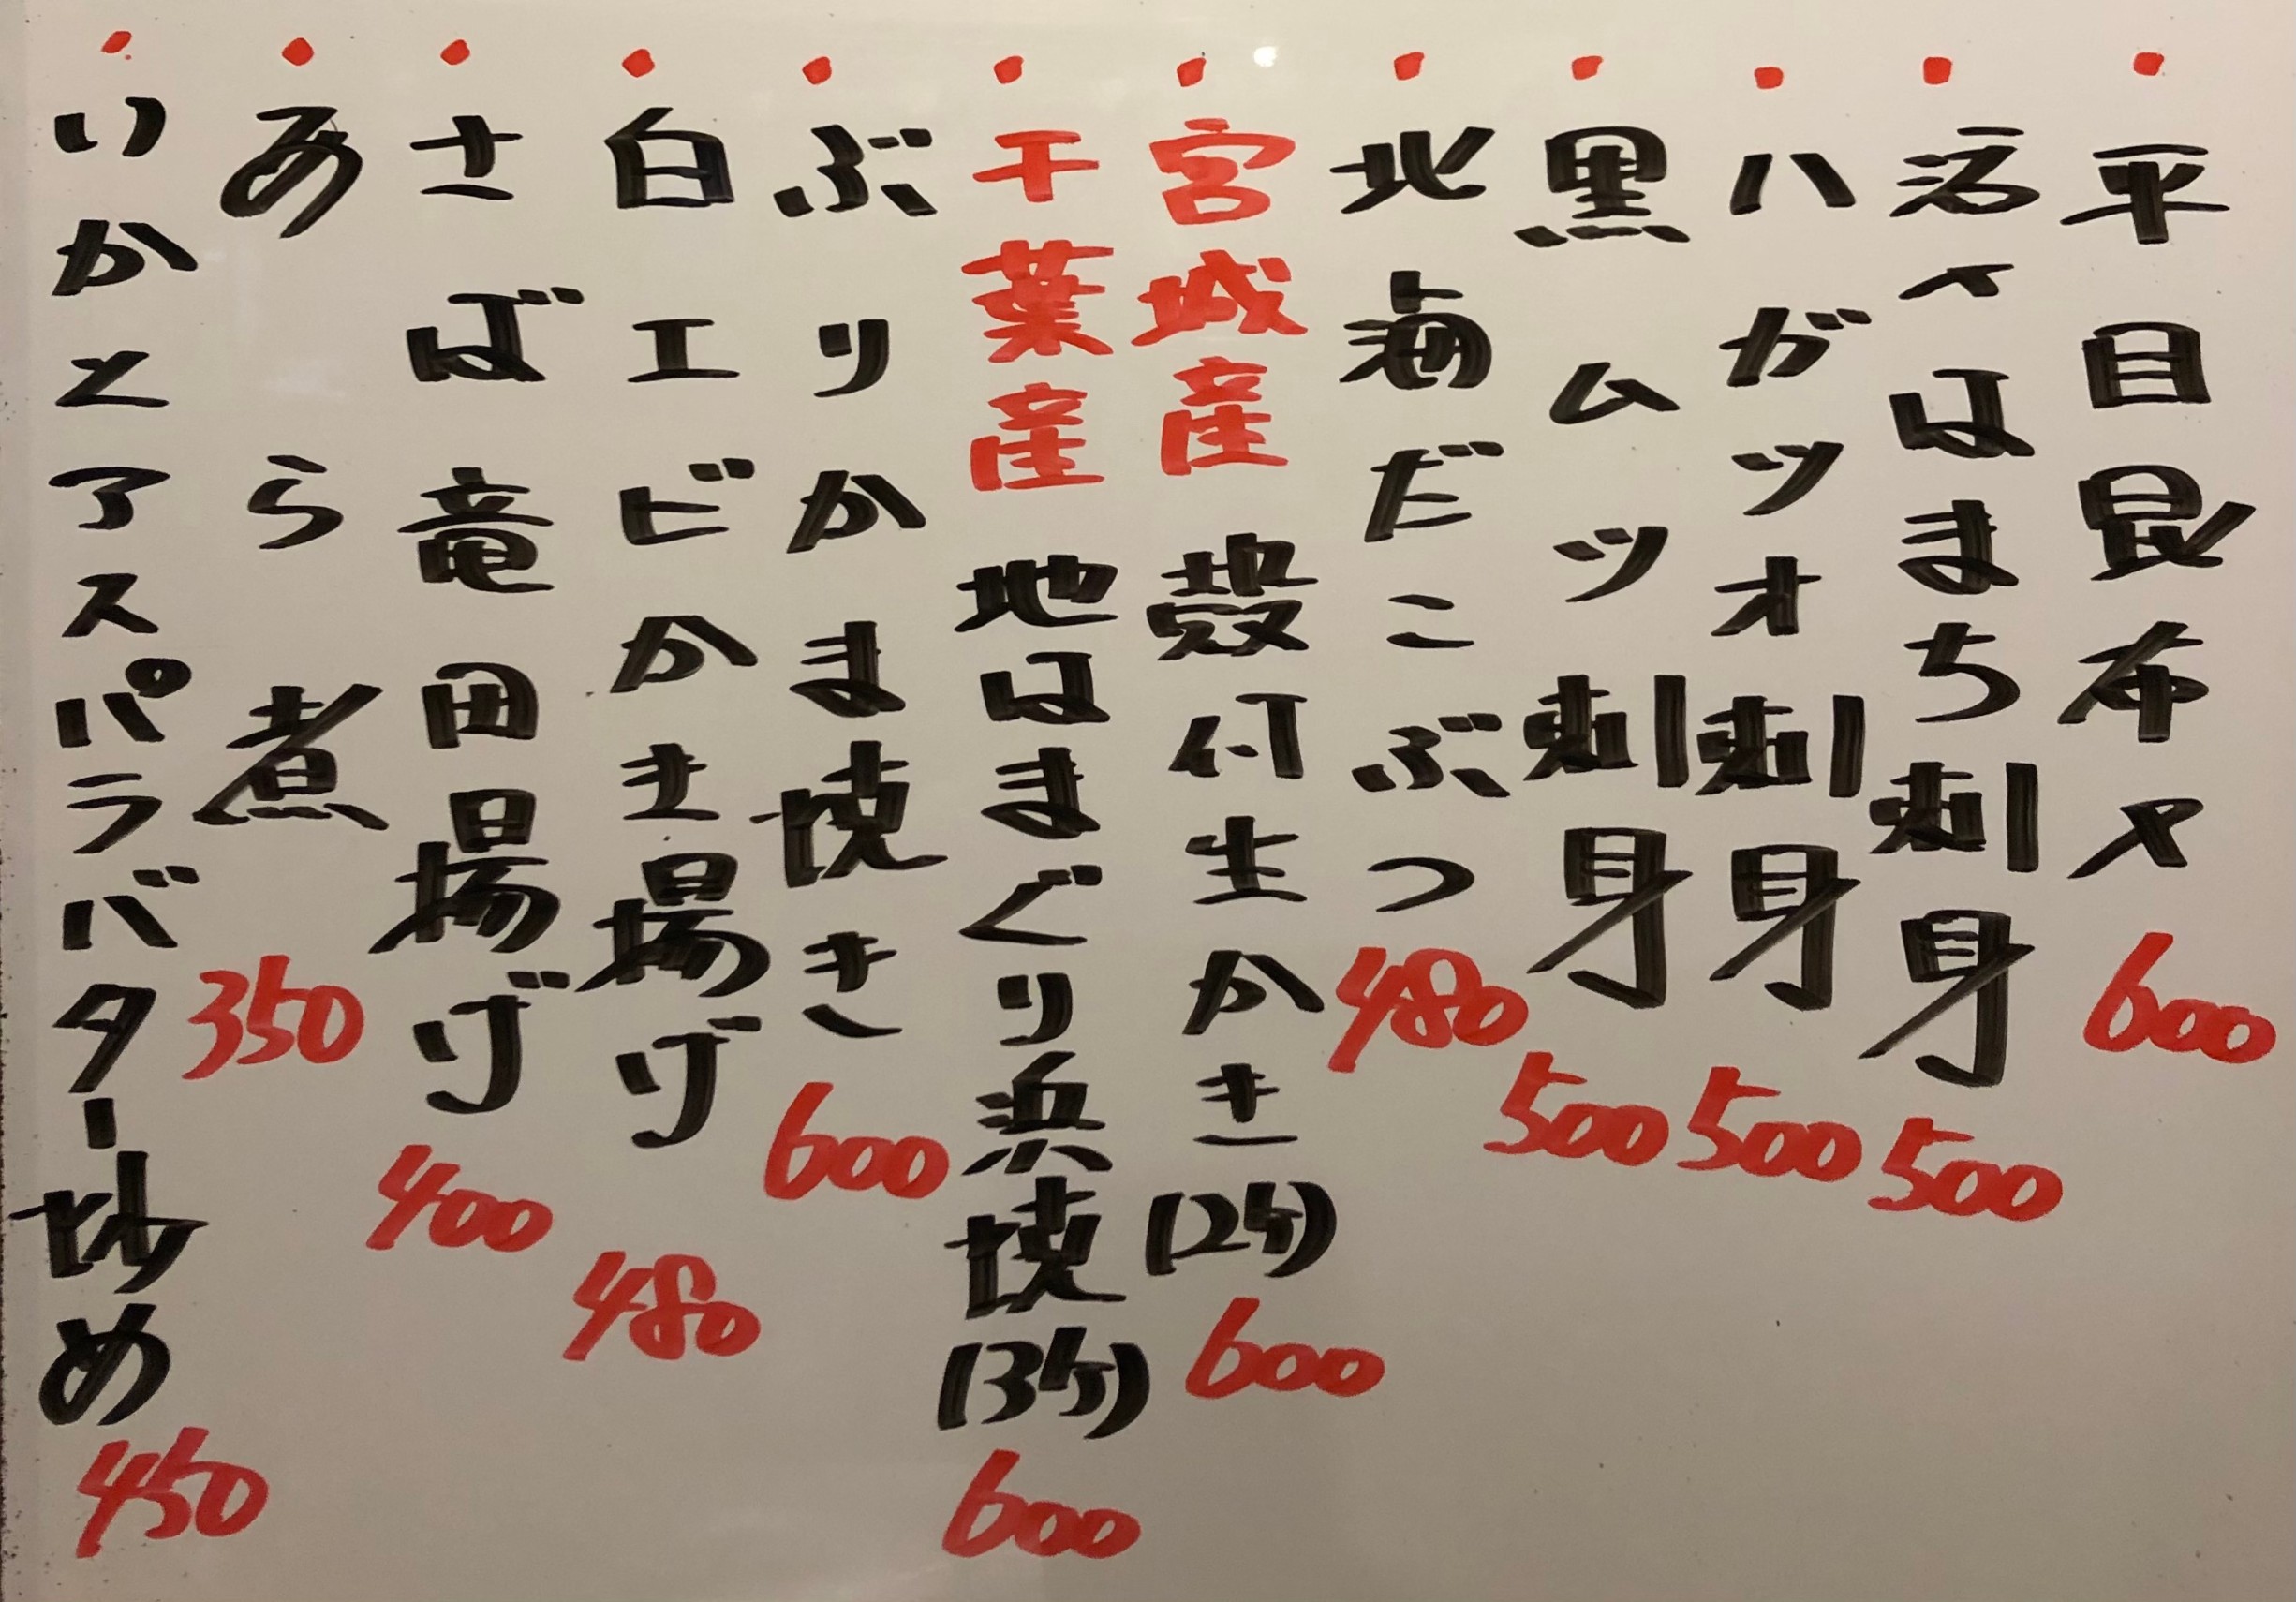 ・平目昆布〆 600
・活〆はまち刺身 500
・ハガツオ刺身 500
・黒ムツ刺身 500
・北海だこぶつ 480
・宮城産 殻付生かき(2ケ) 600
・千葉産 地はまぐり浜焼(3ケ) 600
・ぶりかま焼き 600
・白エビかき揚げ 480
・さば竜田揚げ 400
・あら煮 350
・いかとアスパラバター炒め 450